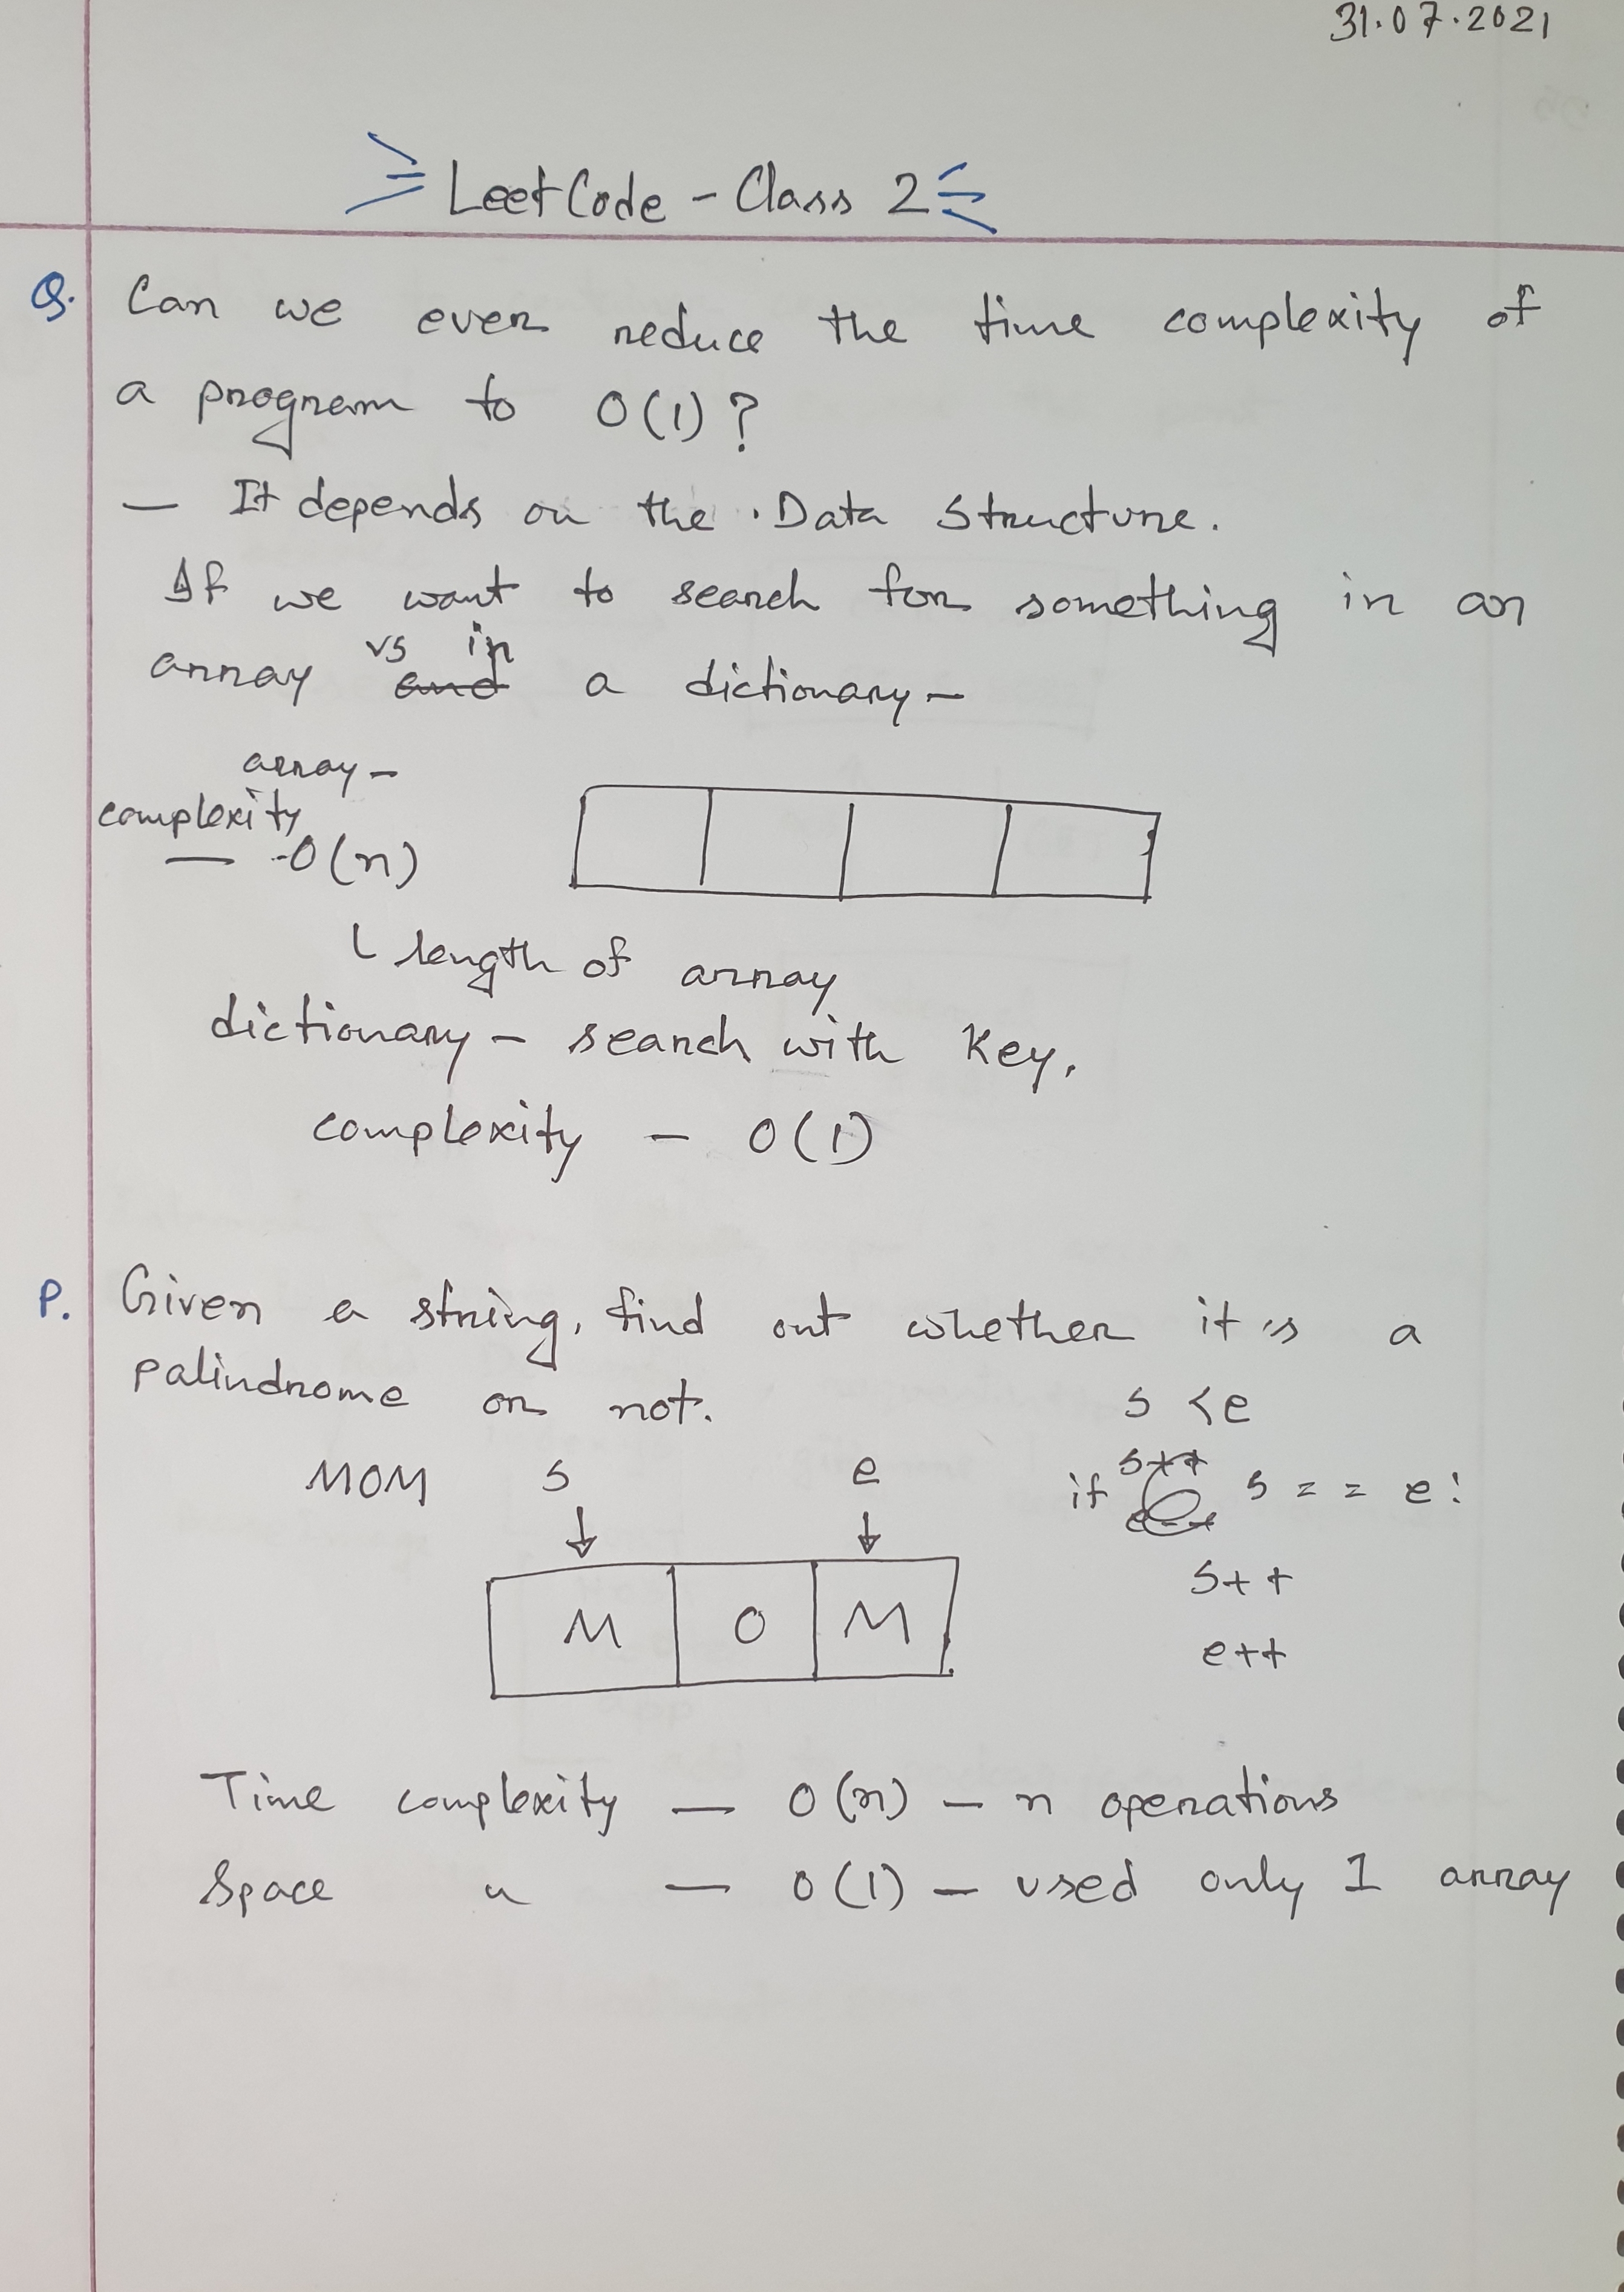 31.07.2021
LeetCode - Class 2
Q. Can we ever reduce the time complexity of
a program to O(1)?
— It depends on the Data Structure.
If we want to search for something in an
vs in
array and a dictionary –
array –
complexity
— O(n)
length of array
dictionary – search with key.
complexity – O(1)
P. Given a string, find out whether it is a
palindrome or not.
s < e
MOM s e
if s++ s == e:
e--
s++
M O M
e++
Time complexity — O(n) – n operations
Space " — O(1) – used only 1 array